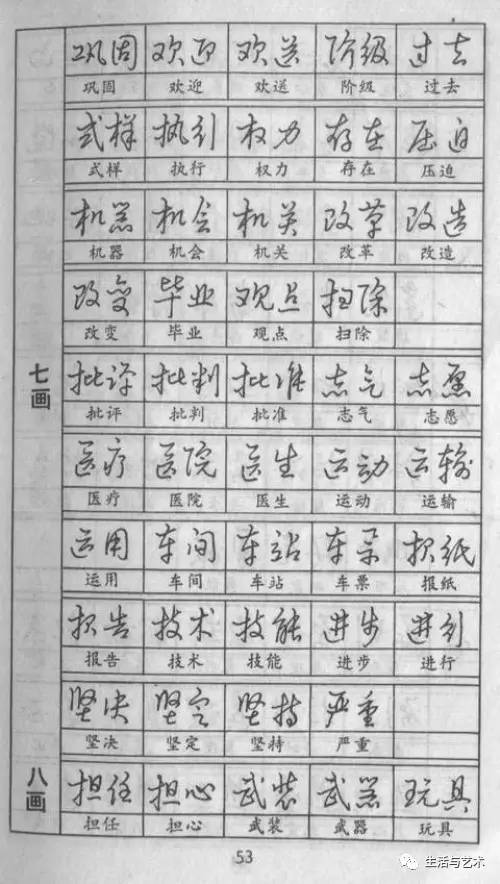 巩固 欢迎 欢送 阶级 过去
巩固 欢迎 欢送 阶级 过去
式样 执行 权力 存在 压迫
式样 执行 权力 存在 压迫
机器 机会 机关 改革 改造
机器 机会 机关 改革 改造
改变 毕业 观点 扫除
改变 毕业 观点 扫除
七画
批评 批判 批准 志气 志愿
批评 批判 批准 志气 志愿
医疗 医院 医生 运动 运输
医疗 医院 医生 运动 运输
运用 车间 车站 车票 报纸
运用 车间 车站 车票 报纸
报告 技术 技能 进步 进行
报告 技术 技能 进步 进行
坚决 坚定 坚持 严重
坚决 坚定 坚持 严重
八画
担任 担心 武装 武器 玩具
担任 担心 武装 武器 玩具
53
生活与艺术